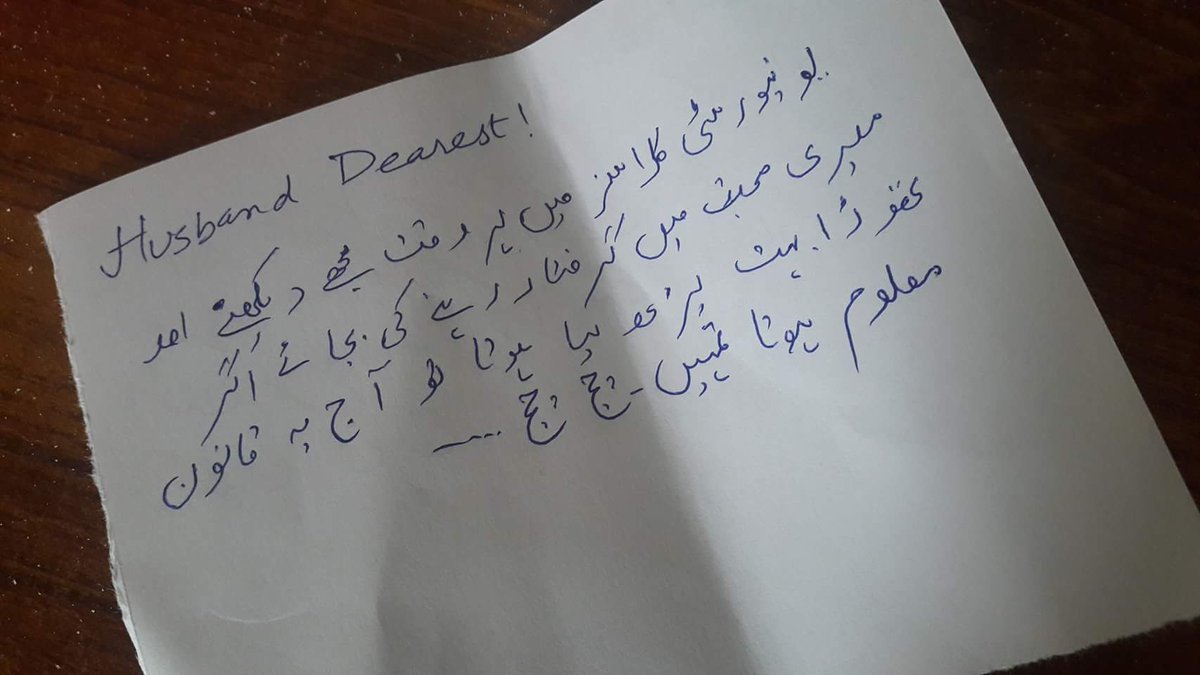 Husband Dearest!
یونیورسٹی کلاسز میں ہر وقت مجھے دیکھنے اور
میری محبت میں گرفتار رہنے کی بجائے اگر
تھوڑا بہت پڑھ لیا ہوتا تو آج یہ قانون
معلوم ہوتا تمہیں۔ چچ چچ ....